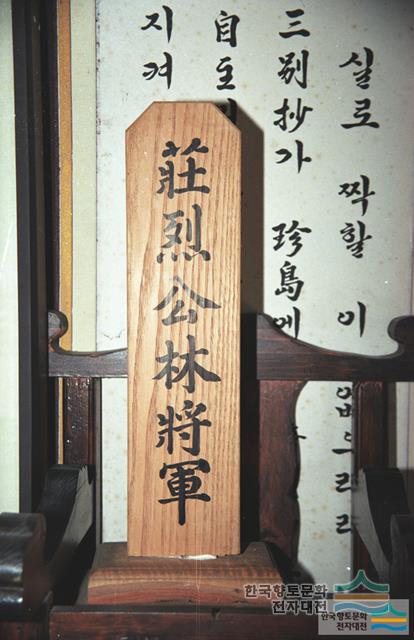 莊烈公林將軍
실로 짝할 이 없으리라
三別抄가 珍島에
自主
지켜
한국향토문화
전자대전
한국향토문화
전자대전